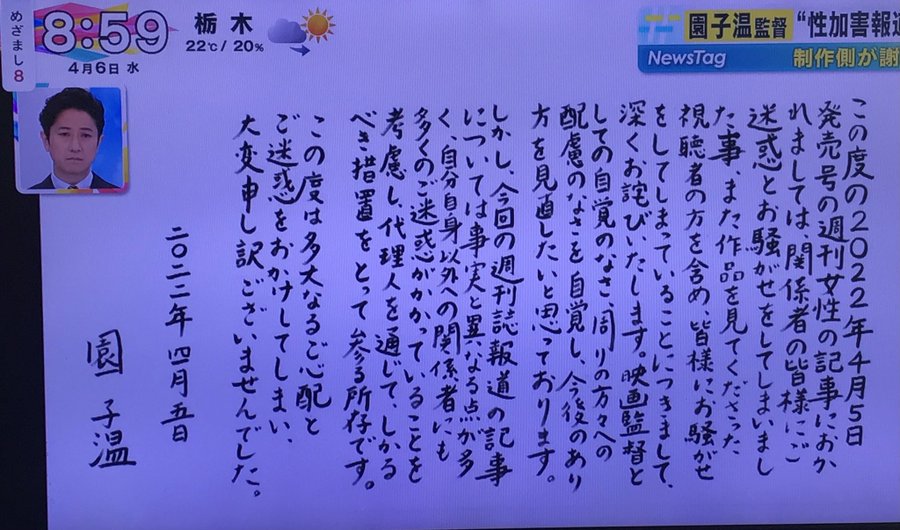 めざまし8
8:59
4月6日 水
栃木
22℃/20%
園子温監督 “性加害報道
NewsTag
制作側が謝
この度の2022年4月5日
発売号の週刊女性の記事におか
れましては、関係者の皆様にご
迷惑とお騒がせをしてしまいまし
た事、また作品を見てくださった
視聴者の方を含め、皆様にお騒がせ
をしてしまっていることにつきまして、
深くお詫びいたします。映画監督と
しての自覚のなさ、周りの方々への
配慮のなさを自覚し、今後のあり
方を見直したいと思っております。
しかし、今回の週刊誌報道の記事
については事実と異なる点が多
く、自分自身以外への関係者にも
多くのご迷惑がかかっていることを
考慮し、代理人を通じて、しかる
べき措置をとって参る所存です。
この度は多大なるご心配と
ご迷惑をおかけしてしまい、
大変申し訳ございませんでした。
二〇二二年四月五日
園子温